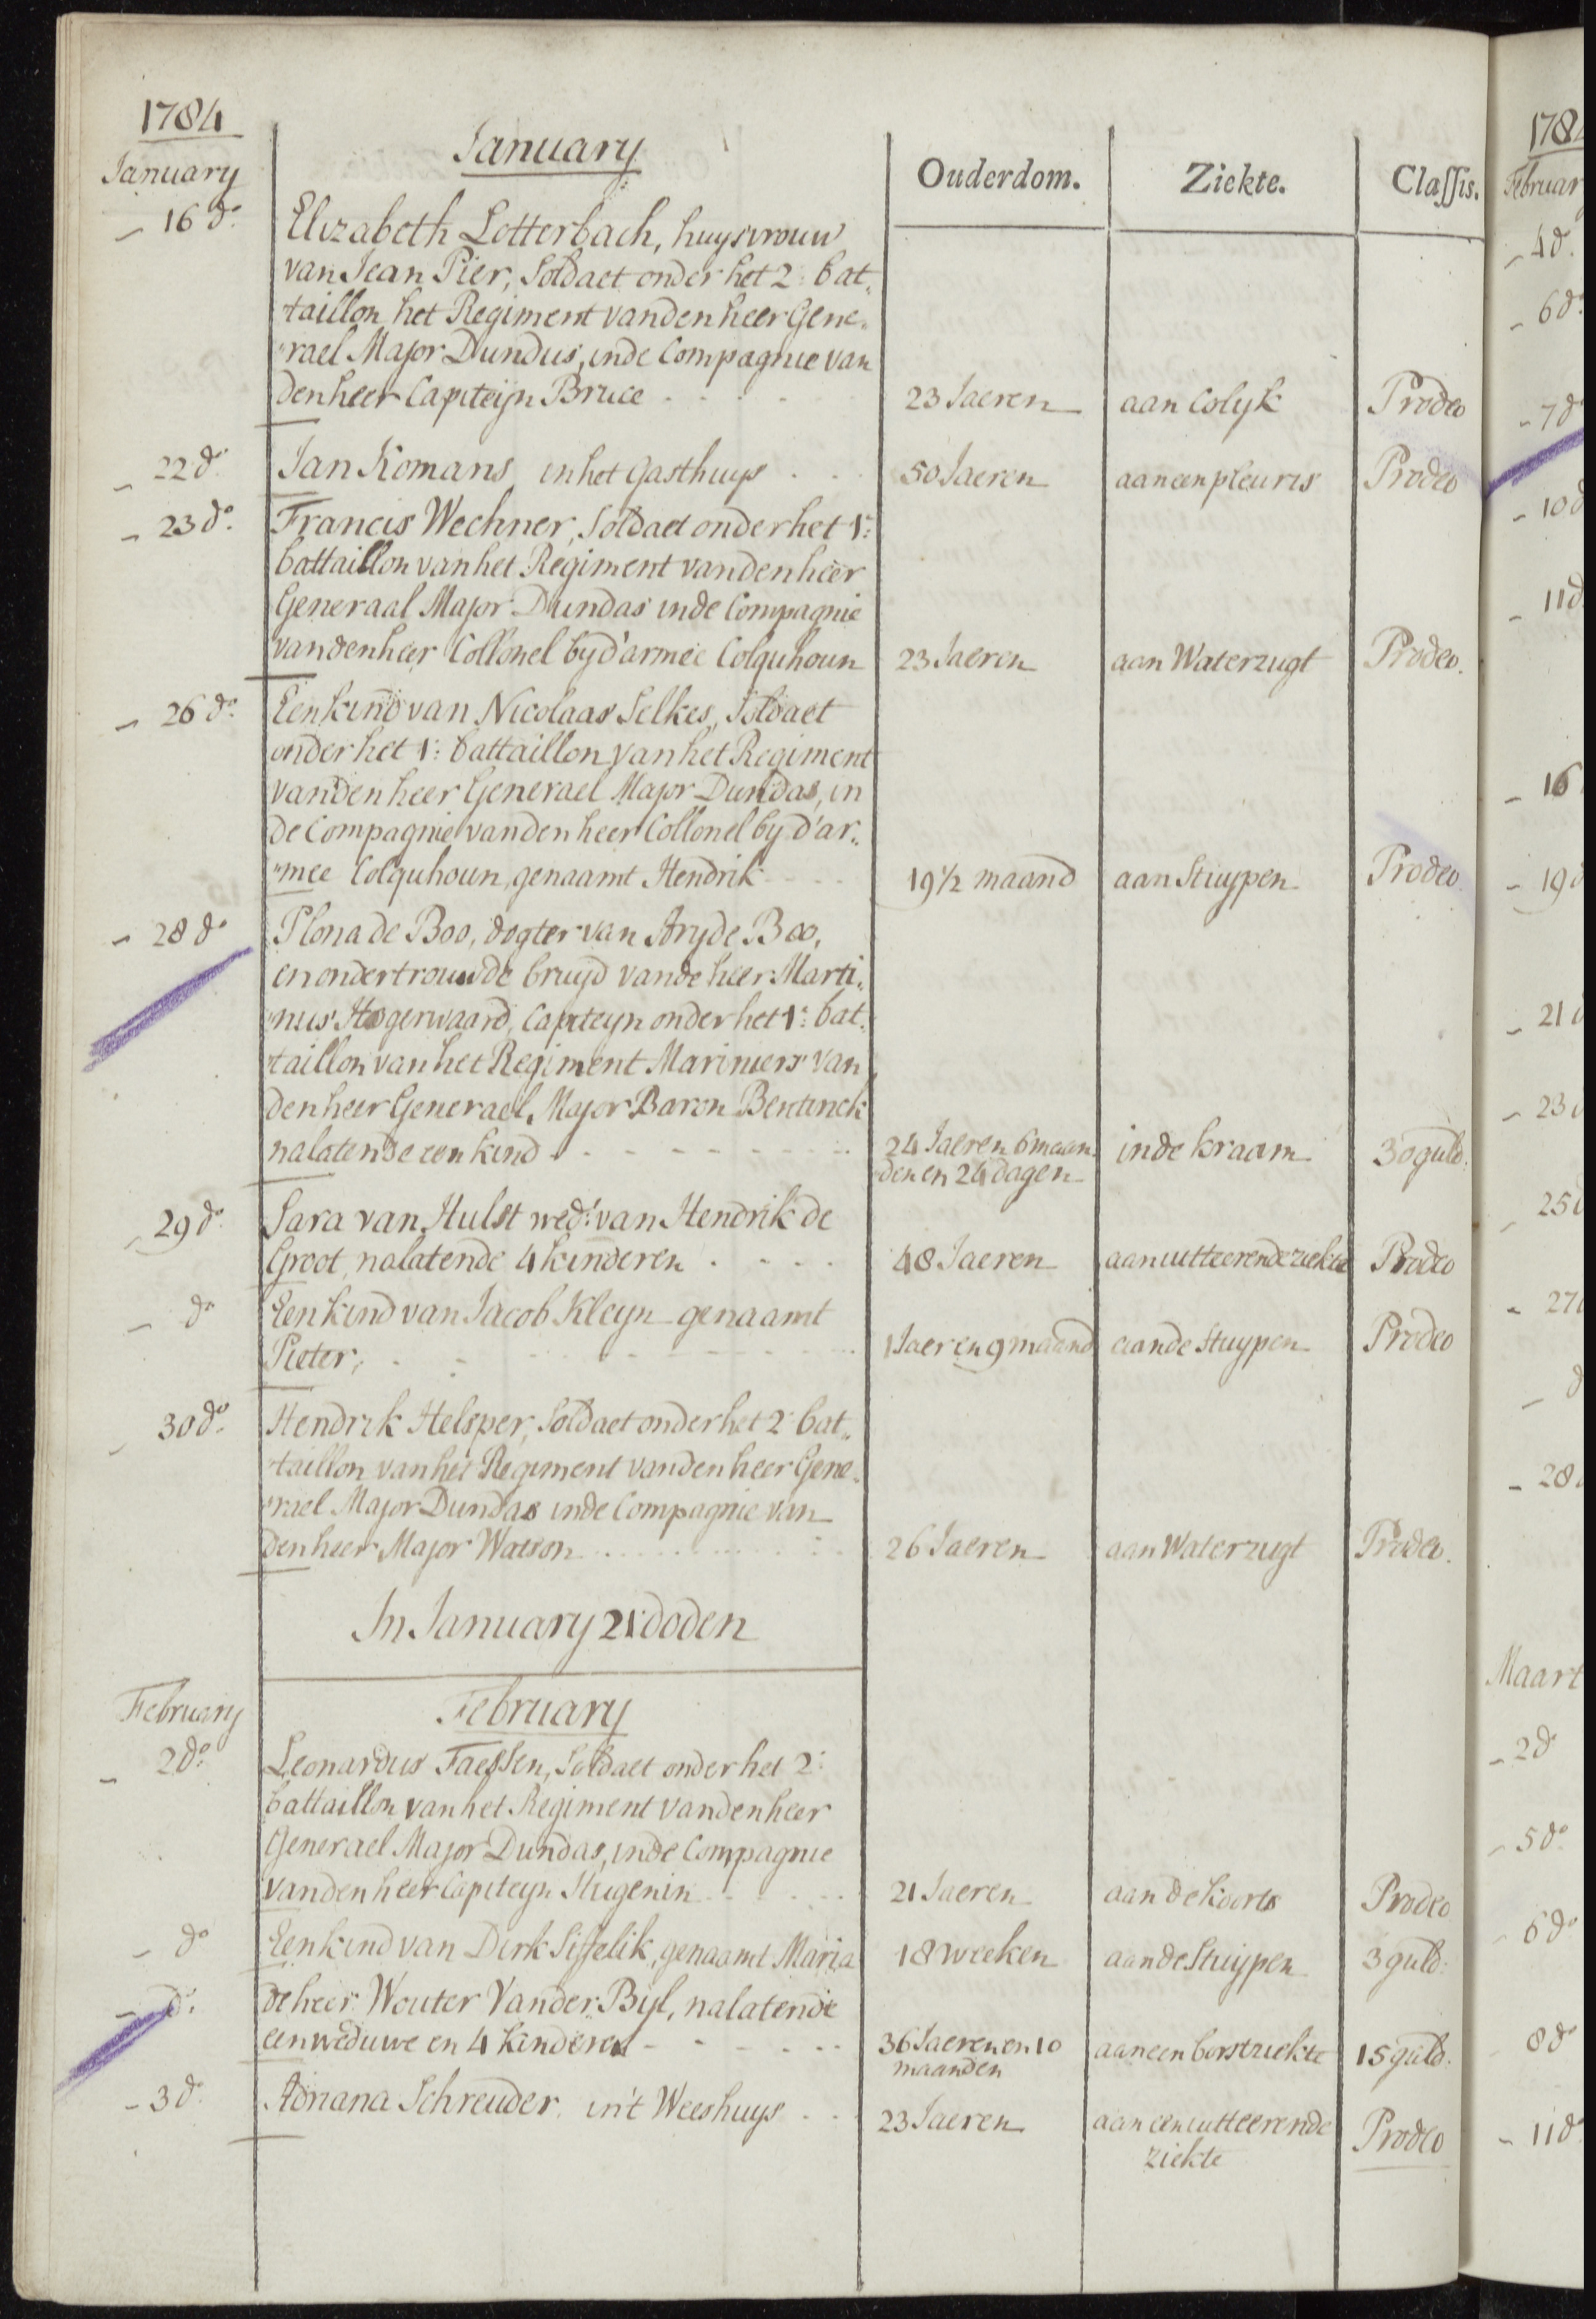 1784
January
January
Ouderdom.
Ziekte.
Classis.
16 do.
Elizabeth Lotterbach, huysvrouw
van Jean Pier, Soldaet onder het 2: bat„
„taillon het Regiment van den heer Gene„
„rael Major Dundus, in de Compagnie van
den heer Capiteijn Bruce
23 Jaeren
aan Colyk
Prodeo
22 do.
Jan Komans in het Gasthuys
50 Jaeren
aan een pleuris
Prodeo
23 do.
Francis Wechner, Soldaet onder het 1:
battaillon van het Regiment van den heer
Generaal Major Dundas in de Compagnie
van den heer Collonel by d'armee Colquhoun
23 Jaeren
aan Waterzugt
Prodeo.
26 do.
Een kind van Nicolaas Selkes, Soldaet
onder het 1: battaillon van het Regiment
van den heer Generael Major Dundas, in
de Compagnie van den heer Collonel by d'ar„
„mee Colquhoun, genaamt Hendrik
19 1/2 maand
aan Stuypen
Prodeo.
28 do
Plona de Boo, dogter van Ary de Boo,
en ondertrouwde bruyd van de heer Marti„
„nus Hogerwaard, Capiteyn onder het 1: bat„
„taillon van het Regiment Mariniers van
den heer Generael Major Baron Bentinck
nalatende een kind
24 Jaeren 6 maan„
den en 24 dagen
in de kraam
30 guld:
29 do.
Sara van Hulst wed: van Hendrik de
Groot, nalatende 4 kinderen
48 Jaeren
aan uitteerende ziekte
Prodeo
do
Een kind van Jacob Kleyn genaamt
Pieter,
1 Jaer en 9 maand
aan de Stuypen
Prodeo
30 do.
Hendrik Helsper, Soldaet onder het 2: bat„
„taillon van het Regiment van den heer Gene„
„rael Major Dundas in de Compagnie van
den heer Major Watson
26 Jaeren
aan Waterzugt
Prodeo.
In January 21 doden
February
February
2 do.
Leonardus Faessen, Soldaet onder het 2:
battaillon van het Regiment van den heer
Generael Major Dundas, in de Compagnie
van den heer Capiteyn Hugenin
21 Jaeren
aan de koorts
Prodeo
do
Een kind van Dirk Siffelik, genaamt Maria
18 weeken
aan de Stuypen
3 guld:
do.
de heer Wouter Vander Byl, nalatende
een weduwe en 4 kinderen
36 Jaeren en 10
maanden
aan een borstziekte
15 guld:
3 do.
Adriana Schreuder in't Weeshuys
23 Jaeren
aan een uitteerende
ziekte
Prodeo
178
Februar
4 d.
6 do.
7 do
10 d
11 d
16
19 d
21 d
23 d
25 d
27 d
d
28 d
Maart
2 do
5 do.
6 do
8 do
11 do